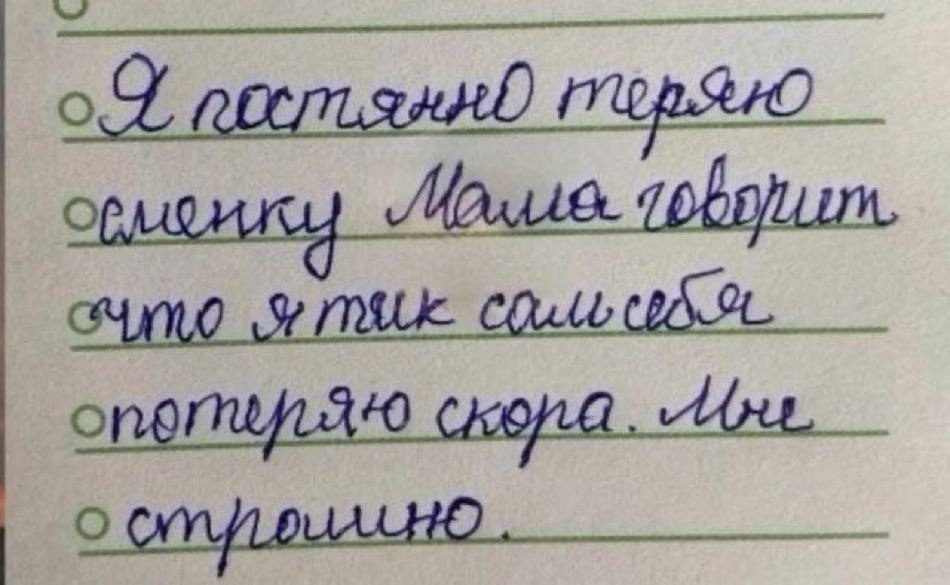 Я постянно теряю
сменку Мама говорит
что я так сам себя
потеряю скора. Мне
страшно.